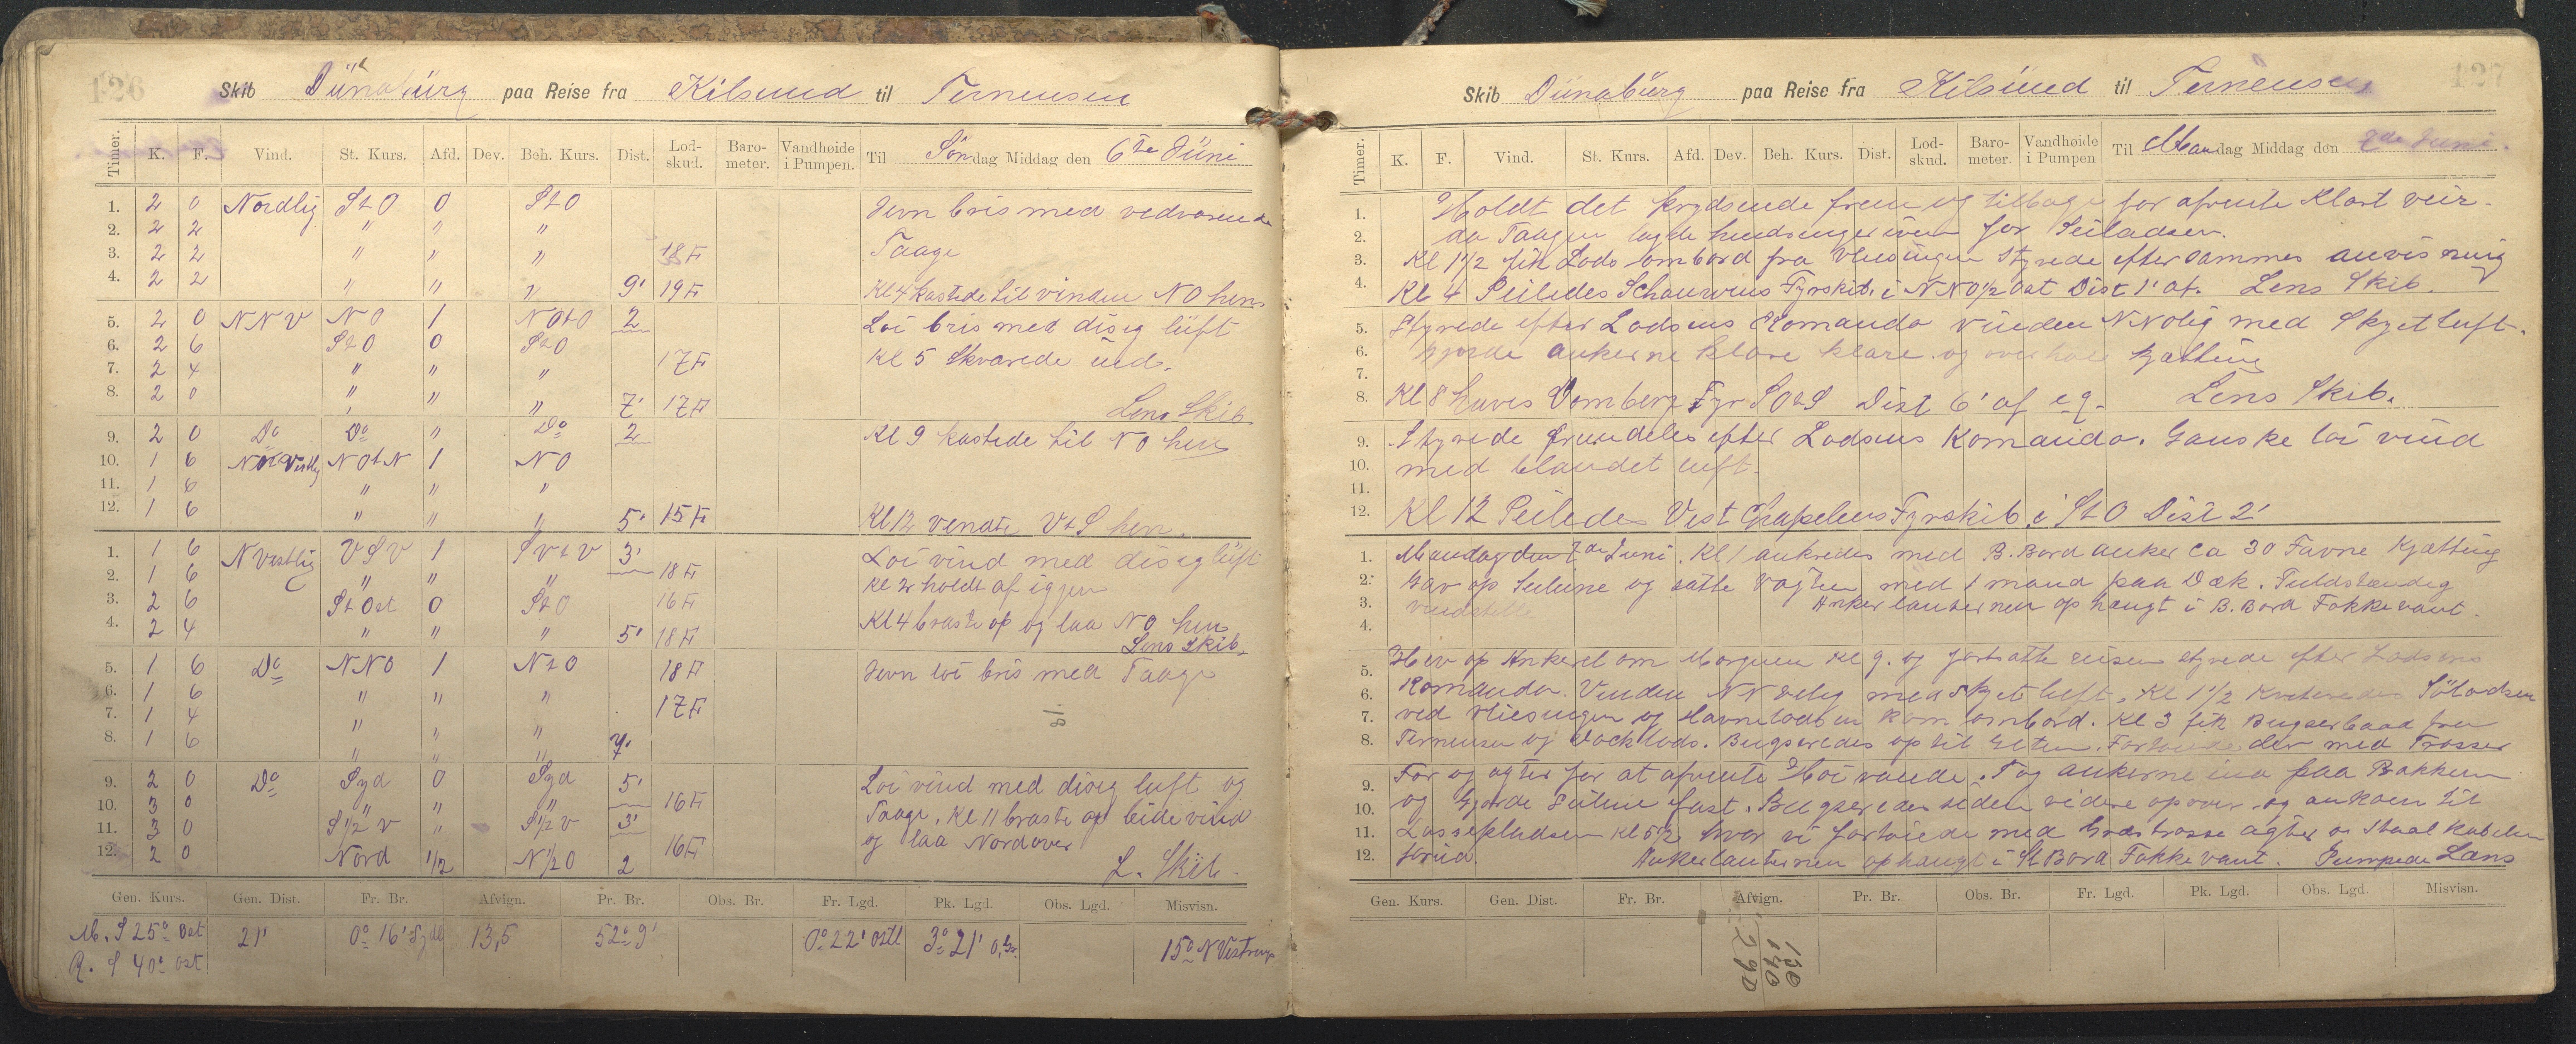 126
Skib Dünabürg paa Reise fra Kilsund til Ternensen
Timer. K. F. Vind. St. Kurs. Afd. Dev. Beh. Kurs. Dist. Lod-skud. Baro-meter. Vandhøide i Pumpen. Til Søndag Middag den 6te Jüni
1. 2 0 Nordlig StO 0 StO Jevn bris med vedvarende
2. 2 2 " " "
3. 2 2 " " " 18 F Taage
4. 2 2 " " " 9' 19 F Kl 4 kastede til vinden NO hen
5. 2 0 NNV NO 1 NOtO 2 Loi bris med diseg lüft
6. 2 6 StO 0 StO
7. 2 4 " " " 17 F Kl 5 Skvarede üd.
8. 2 0 " " " 7' 17 F Lens Skib
9. 2 0 Do Do " Do 2 Kl 9 kastede til NO hen
10. 1 6 NVestlig NOtN 1 NO
11. 1 6 " " "
12. 1 6 " " " 5' 15 F Kl 12 vendte VtS hen.
1. 1 6 NVestlig VSV 1 SVtV 3' Loi vind med diseg lüft
2. 1 6 " " " 18 F Kl 2 holdt af igjen
3. 2 6 St Ost 0 StO 16 F
4. 2 4 " " " 5' 18 F Kl 4 braste op og laa NO hen
Lens Skib.
5. 1 6 Do NNO 1 NtO 18 F Jevn loi bris med Taage
6. 1 6 " " " 17 F
7. 1 4 " " "
8. 1 6 " " " 7'
9. 2 0 Do Syd 0 Syd 5' Loi vind med diseg luft og
10. 3 0 " " " 16 F Taage. Kl 11 braste op bidevind
11. 3 0 S 1/2 V " S 1/2 V 3' og laa Nordover
12. 2 0 Nord 1/2 N 1/2 O 2 16 F L. Skib
Gen. Kurs. Gen. Dist. Fr. Br. Afvign. Pr. Br. Obs. Br. Fr. Lgd. Pk. Lgd. Obs. Lgd. Misvisn.
M. S 25° Ost 21' 0° 16' Sydl 13,5 52° 9' 0° 22' Ostl 3° 21' O. Gr. 15° NVestrung
R. S 40° Ost
127
Skib Dünabürg paa Reise fra Kilsünd til Ternensen
Timer. K. F. Vind. St. Kurs. Afd. Dev. Beh. Kurs. Dist. Lod-skud. Baro-meter. Vandhøide i Pumpen Til Mandag Middag den 7de Juni.
1. Holdt det krydsende frem og tilbage for afvente Klart veir.
2. da Taagen lagde hindringer iveien for Seiladsen.
3. Kl 1 1/2 fik Lods ombord fra Vliesingen Styrede efter sammes anvisning
4. Kl 4 Peiledes Schouwens Fyrskib i NNO 1/2 Ost Dist 1' af. Lens Skib.
5. Styrede efter Lodsens Komando vinden NNolig med Skyet luft.
6. Gjorde ankerne klare klare og overhalt kjætting
7.
8. Kl 8 haves Domberg Fyr SOtS Dist 6' af eg. Lens Skib.
9. Styrede fremdeles efter Lodsens Komando. Ganske loi vind
10. med blandet luft.
11.
12. Kl 12 Peiledes Vest Grapelens Fyrskib i StO Dist 2'
1. Mandag den 7de Juni. Kl 1 ankredes med B. Bord anker ca 30 Favne Kjætting
2. Gav op Seilene og satte Vagten med 1 mand paa Dæk. Fuldstændig
3. vindstille Ankerlanternen ophengt i B. Bord Fokkevant.
4.
5. Hiv op Ankeret om Morgenen Kl 9. og fortsatte reisen styrede efter Lodsens
6. Komando. Vinden NNvelig med skyet luft. Kl 1 1/2 Kviteredes Sölodsen
7. ved Vliesingen og Havnelodsen kom ombord. Kl 3 fik Bugserbaad fra
8. Ternensen og Docklods. Bugseredes op til der med Trosser
9. For og agter for at afvente Hoivande. Tog ankerne ind paa Bakken
10. og Gjorde Seilene fast. Bugseredes siden videre opover og ankom til
11. Lossepladsen Kl 5 1/2 hvor vi fortoiede med Grastrosse agter og Staal Kabelen
12. forud. Ankerlanternen ophængt i St Bord Fokkevant. Pumpede Læns
Gen. Kurs. Gen. Dist. Fr. Br. Afvign. Pr. Br. Obs. Br. Fr. Lgd. Pk. Lgd. Obs. Lgd. Misvisn.
150
140
290